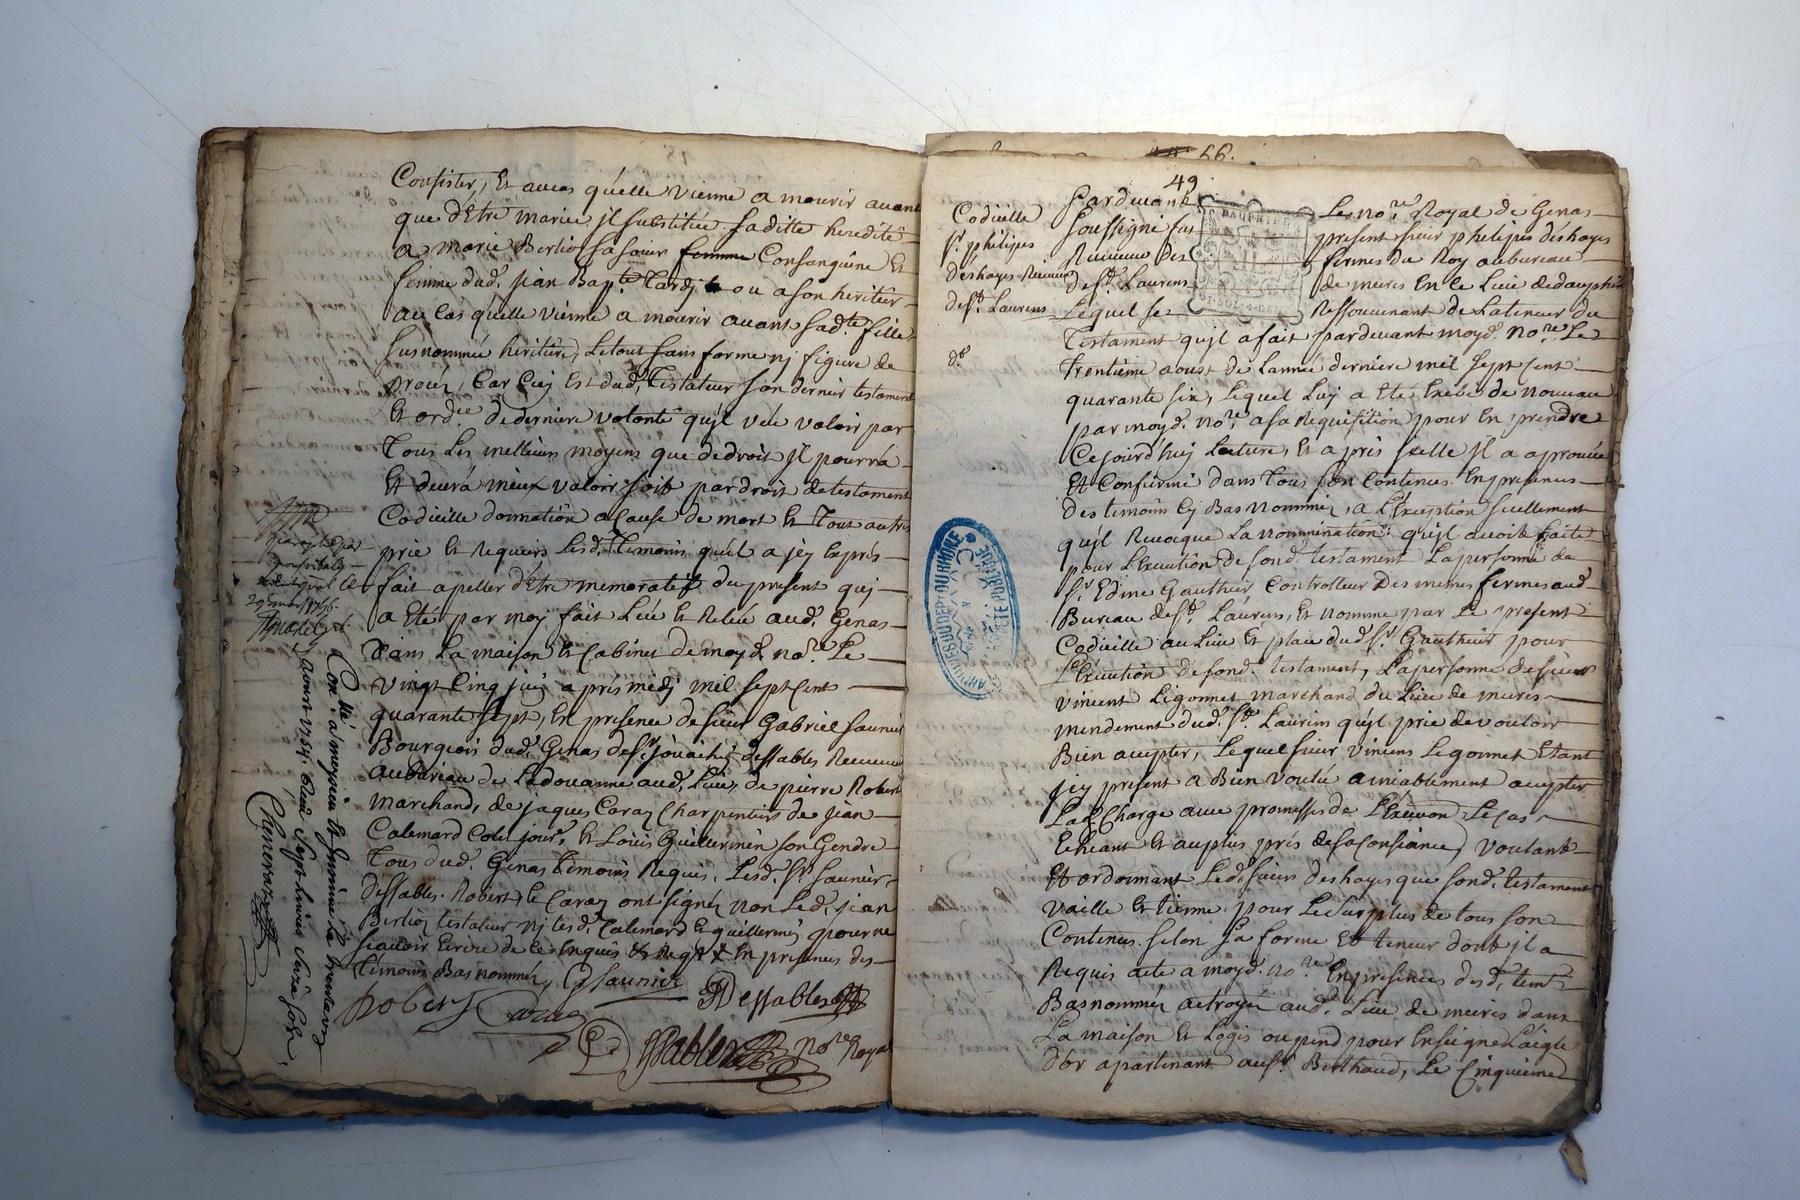 Consister, Et aucas quelle vienne a mourir avant
que d'Etre mariée jl substitue sa ditte heredité
a marie Berlio sa soeur femme Consanguine Et
femme dud. jean Bapte Tardj ou a son heritier
au Cas quelle vienne a mourir avant sad.te fille
susnommée heritiere, Le tout sans forme nj figure de
proces, Car Cecy Est dud. Testateur son dernier testament
Et ord.ce de derniere volonté qu'jl veut valoir par
Tous les meilleurs moyens que de droit jl pourra
Et devra mieux valoir soit par droit de testament
Codicille donnation a Cause de mort Et tout autre
prie Et Requiers Lesd. Temoins qu'il a jcy Exprés
fait apeller d'Etre memoratifs du present quj
a Eté par moy fait Leu Et Releu aud. Genas
Dans La maison Et Cabinet de moyd. no.re Le
vingt Cinq juin aprés midj mil sept Cents
quarante sept, En presence de sieur Gabriel saunier
Bourgeois dud. Genas de sr. joüachin dessables Receveur
au bureau de La douanne aud. Lieu, de pierre Robert
marchand, de jaques Caraz Charpentier de jean
Calemard et Loüis Guillermin son Gendre
Tous dud. Genas temoins Requis. Lesd. sr. saunier
dessables. Robert, Et Caraz ont signés non Led. jean
Berlioz testateur nj lesd. Calemard Et guillermin pour ne
sçavoir Ecrire de Ce Enquis & Req. & En presence des
Temoins Bas nommés, G Saunier
Robert Caraz JDessables
Dessables no.re Royal
29e mars 1756
Con.lé à moyeu
66.
49
Codicille
sr. phelipes
déshayes Receveur
de st. Laurens
d.t
Pardevant Le no.re Royal de Genas
soussigné fut present sieur phelipes déshayes
Receveur Des fermes du Roy au bureau
de st. Laurens de mures En Ce Lieu de dauphiné
Lequel se Ressouvenant de La teneur du
Testament qu'jl a fait pardevant moyd. no.re Le
trentième aoust de Lannée derniere mil sept Cent
quarante six, Lequel Luy a Eté Exibé de nouveau
par moyd. no.re a sa Requisition pour En prendre
Cejourd'huj Lecture, Et aprés jcelle jl a aprouvé
Et Confirmé dans tous son Contenus En presence
Des temoins Cy Bas nommés, a L'Exception seullement
qu'jl Revoque La nommination qu'jl avoit faite
pour L'Execution de son d. testament La personne de
sr. Edme Gauthier Controlleur Des mêmes fermes aud.
Bureau de st. Laurens, Et nomme par Le present
Codicille au Lieu Et place dud. sr. Gauthier pour
L'Execution de son d. testament, La personne de sieur
vincent Ligonnet marchand du Lieu de mures
mendement dud. st. Laurens qu'jl prie de vouloir
Bien accepter, Lequel sieur vincent Legonnet Etant
jcy present a Bien voulu amiablement accepter
Lad. Charge avec promesses de L'Execution Le Cas
Echeant Et au plus prés de sa Consiance, voulant
Et ordonnant Led. sieur deshayes que son d. testament
vaille Et tienne pour Le surplus de tous son
Contenus selon sa forme Et teneur dont jl a
Requis acte a moyd. no.re En presences desd. tem.s
Bas nommés actroyé aud. Lieu de mures dans
La maison Et Logis ou pend pour Enseigne L'aigle
d'or apartenant au sr. Berthaud, Le Cinquieme
ARCHIVES DU DEPT DU RHÔNE